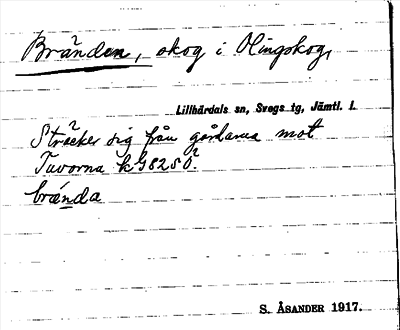 Bränden, skog i Olingskog,
Lillhärdals sn, Svegs tg, Jämtl. l.
Sträcker sig från gårdarna mot
Tuvorna
brända
S. ÅSANDER 1917.